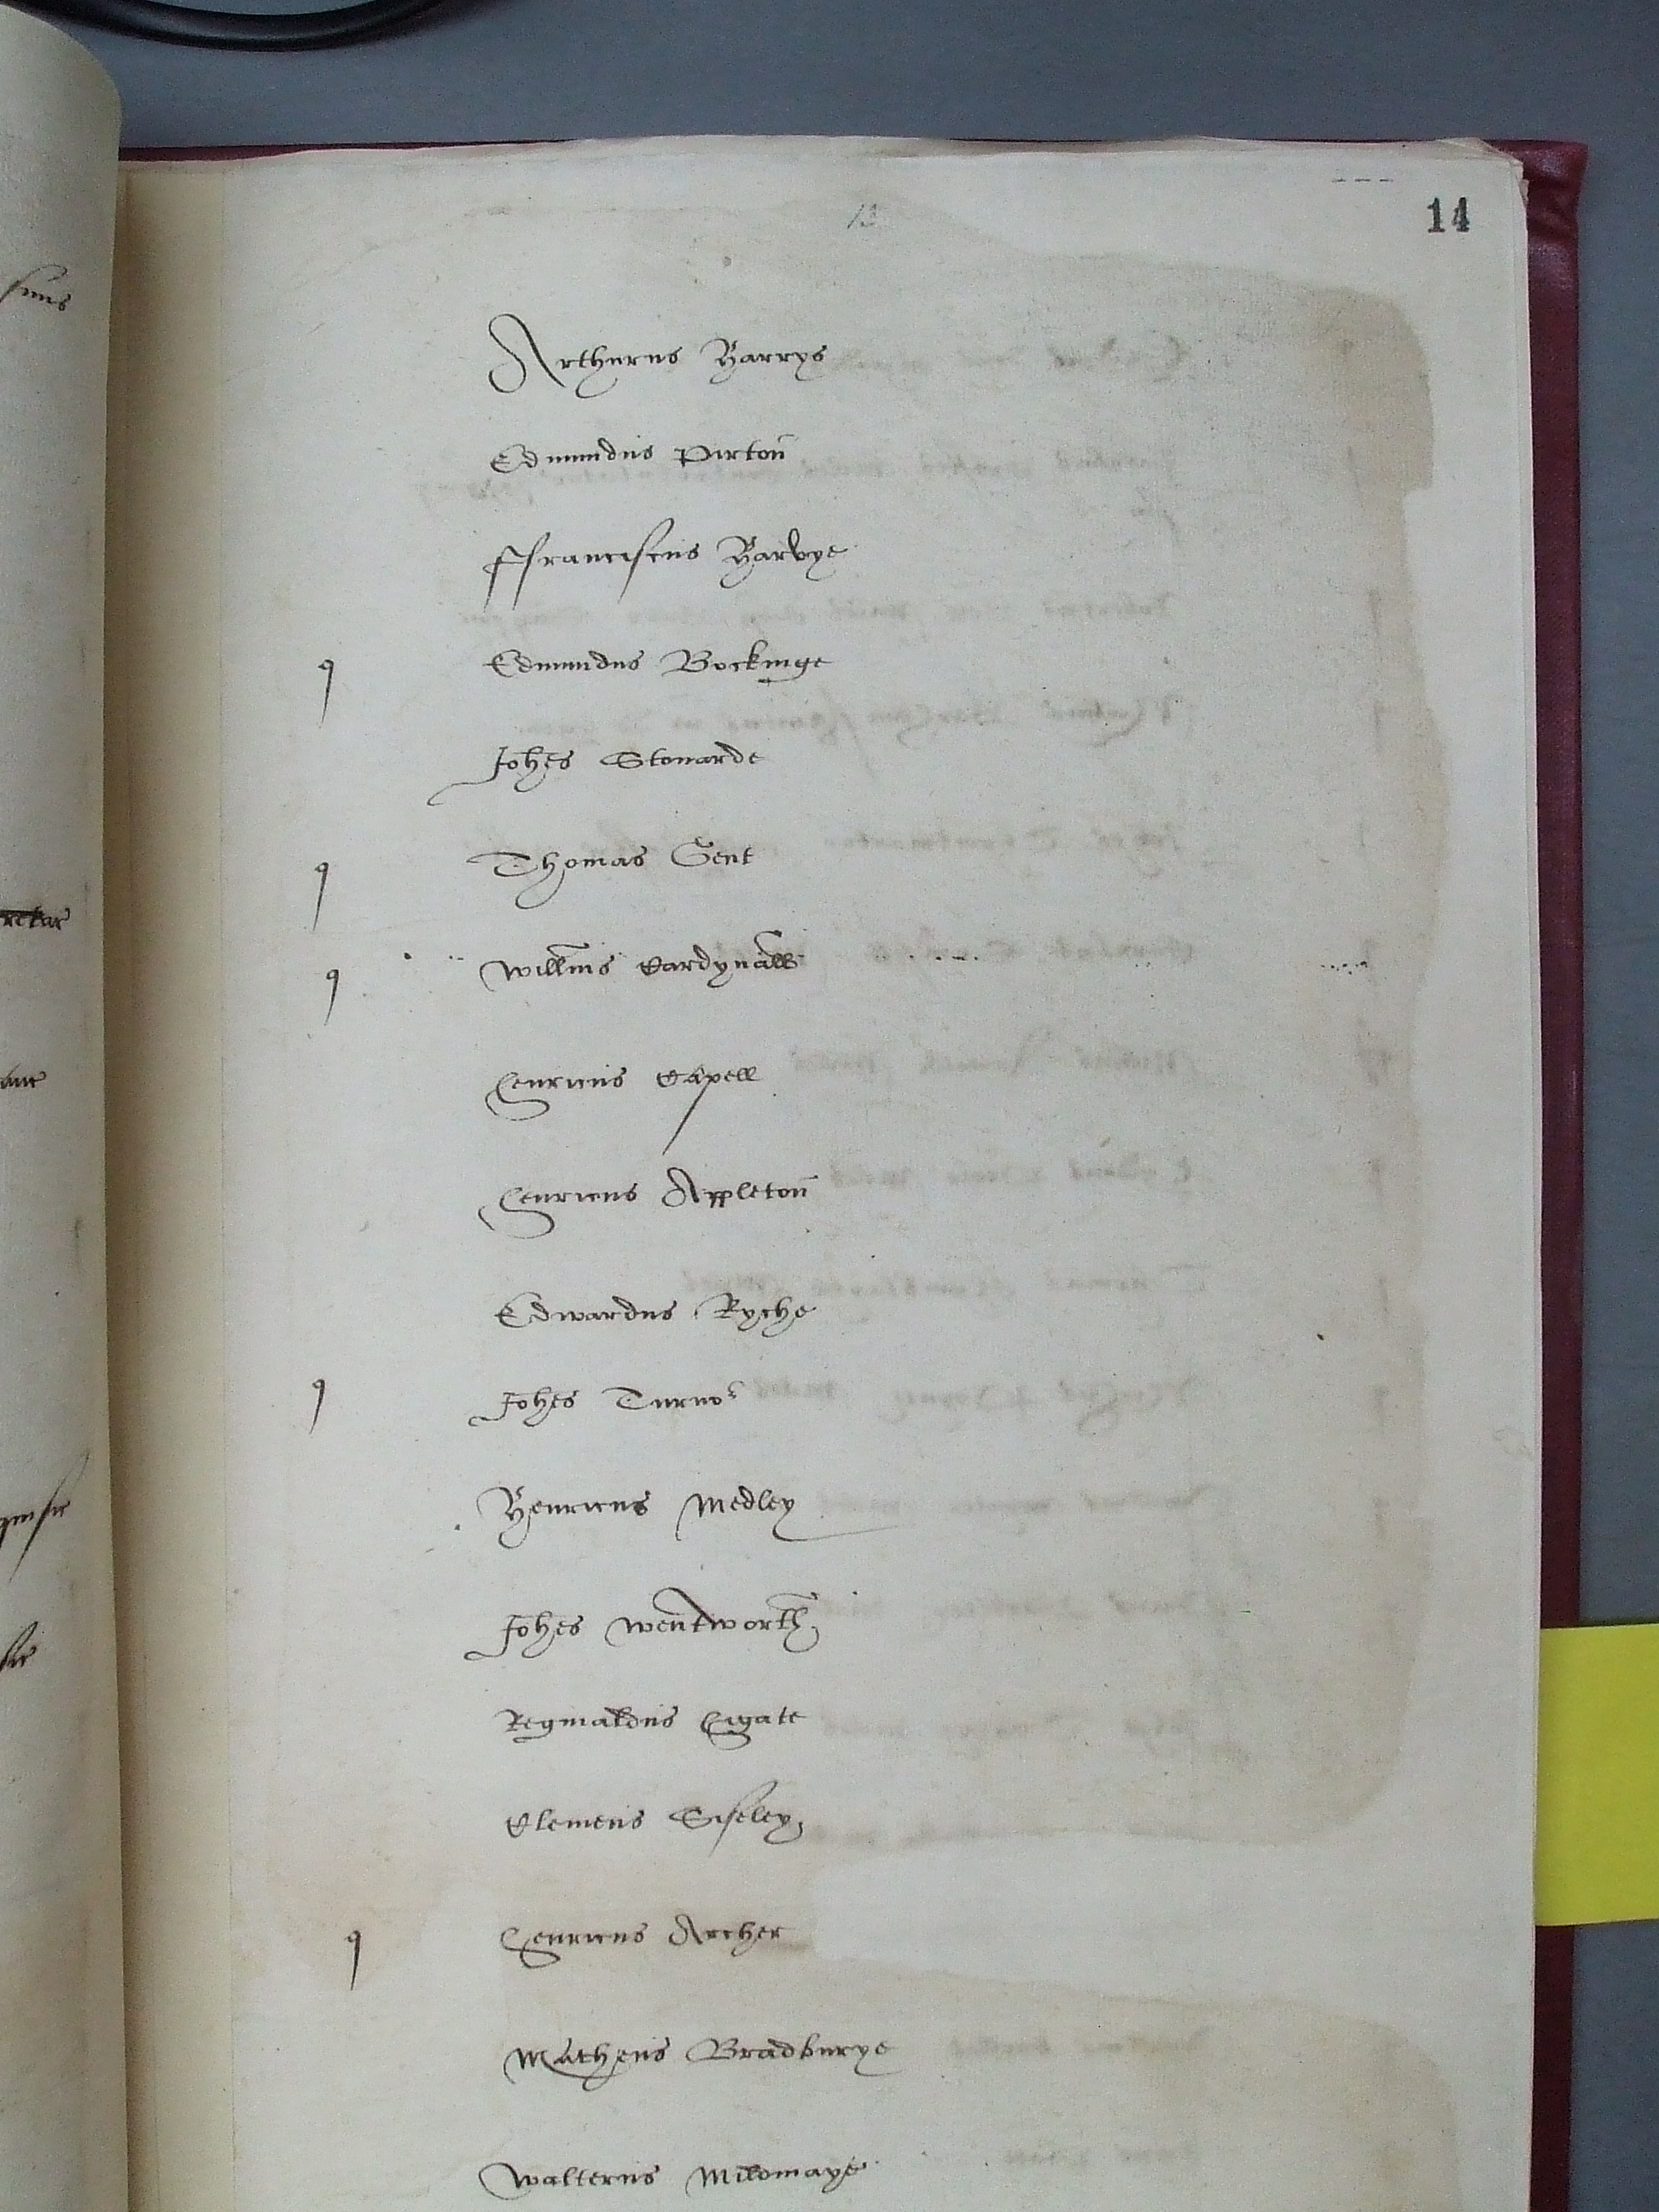 14
Arthurus Harrys
Edmundus Pirton
ffranciscus Harvye
q Edmundus Bockinge
Johes Stonarde
q Thomas Gent
q Willms Cardynall
Henricus Capell
Henricus Appleton
Edwardus Ryche
q Johes Turnor
Henricus Medley
Johes Wentworth
Reginaldus Higate
Clemens Siseley
q Henricus Archer
Matheus Bradburye
Walterus Mildmaye